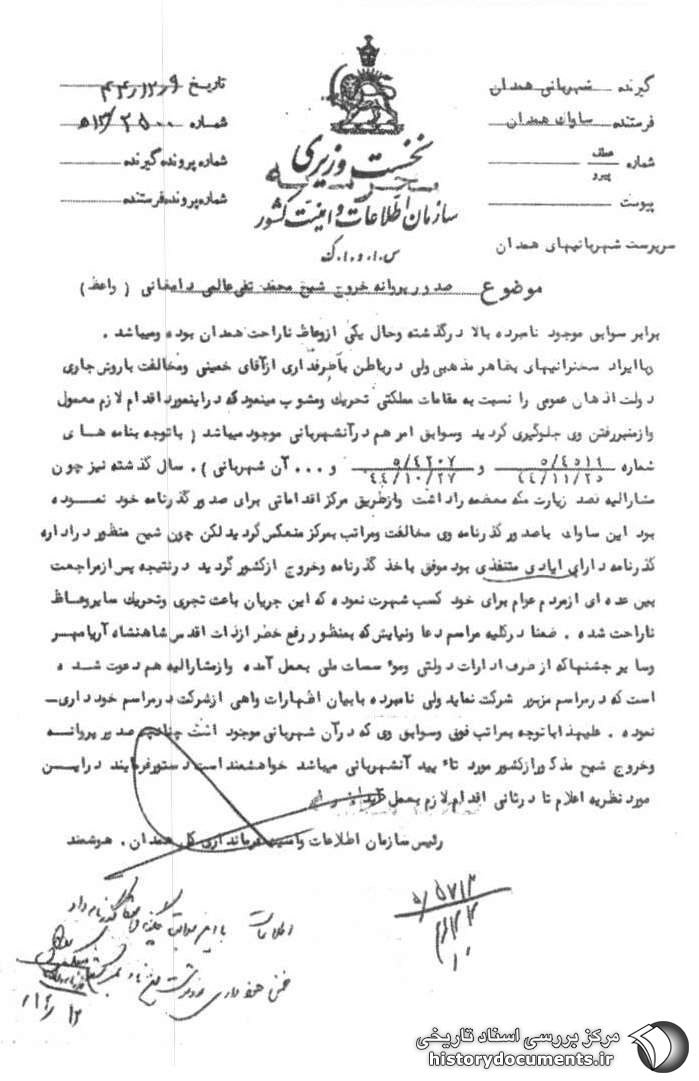 گیرنده شهربانی همدان
فرستنده ساواک همدان
شماره عطف پیرو
پیوست
نخست وزیری
محرمانه
سازمان اطلاعات و امنیت کشور
س.ا.و.ا.ک
تاریخ ۴۴/۱۲/۹
شماره ۵۱۳/۲۵۰۰
شماره پرونده گیرنده
شماره پرونده فرستنده
سرپرست شهربانیهای همدان
موضوع صدور پروانه خروج شیخ محمد تقی عالمی دامغانی ( واعظ )
برابر سوابق موجود نامبرده بالا در گذشته وحال یکی ازوعاظ ناراحت همدان بوده ومیباشد .
وباایراد سخنرانیهای بظاهر مذهبی ولی درباطن باطرفداری ازآقای خمینی ومخالفت باروش جاری
دولت اذهان عمومی را نسبت به مقامات مملکتی تحریک ومشوب مینمود که دراینمورد اقدام لازم معمول
وازمنبررفتن وی جلوگیری گردید وسوابق امر هم درآنشهربانی موجود میباشد ( باتوجه بنامه های
شماره ۵/۴۵۱۹ ۴۴/۱۱/۲۵ و ۵/۴۲۰۷ ۴۴/۱۰/۲۷ و ... آن شهربانی ) . سال گذشته نیز چون
مشارالیه قصد زیارت مکه معظمه راداشت وازطریق مرکز اقداماتی برای صدور گذرنامه خود نموده
بود این ساواک باصدور گذرنامه وی مخالفت ومراتب بمرکز منعکس گردید لکن چون شیخ منظور دراداره
گذرنامه دارای ایادی متنفذی بود موفق باخذ گذرنامه وخروج ازکشور گردید درنتیجه پس ازمراجعت
بین عده ای ازمردم عوام برای خود کسب شهرت نموده که این جریان باعث تجری وتحریک سایروعاظ
ناراحت شده . ضمنا درکلیه مراسم دعا ونیایش که بمنظور رفع خطر ازذات اقدس شاهنشاه آریامهر
وسایر جشنهاکه از طرف ادارات دولتی وموسسات ملی بعمل آمده وازمشارالیه هم دعوت شده
است که درمراسم مزبور شرکت نماید ولی نامبرده بابیان اظهارات واهی ازشرکت درمراسم خودداری-
نموده . علیهذا باتوجه بمراتب فوق وسوابق وی که درآن شهربانی موجود است چنانچه صدور پروانه
وخروج شیخ مذکور ازکشور مورد تاءیید آنشهربانی میباشد خواهشمند است دستورفرمایند دراین
مورد نظریه اعلام تا درثانی اقدام لازم بعمل آید
رئیس سازمان اطلاعات وامنیت فرمانداری کل همدان . هوشمند
اطلاعات با این سوابق چگونه گذرنامه داد
مرکز بررسی اسناد تاریخی
historydocuments.ir